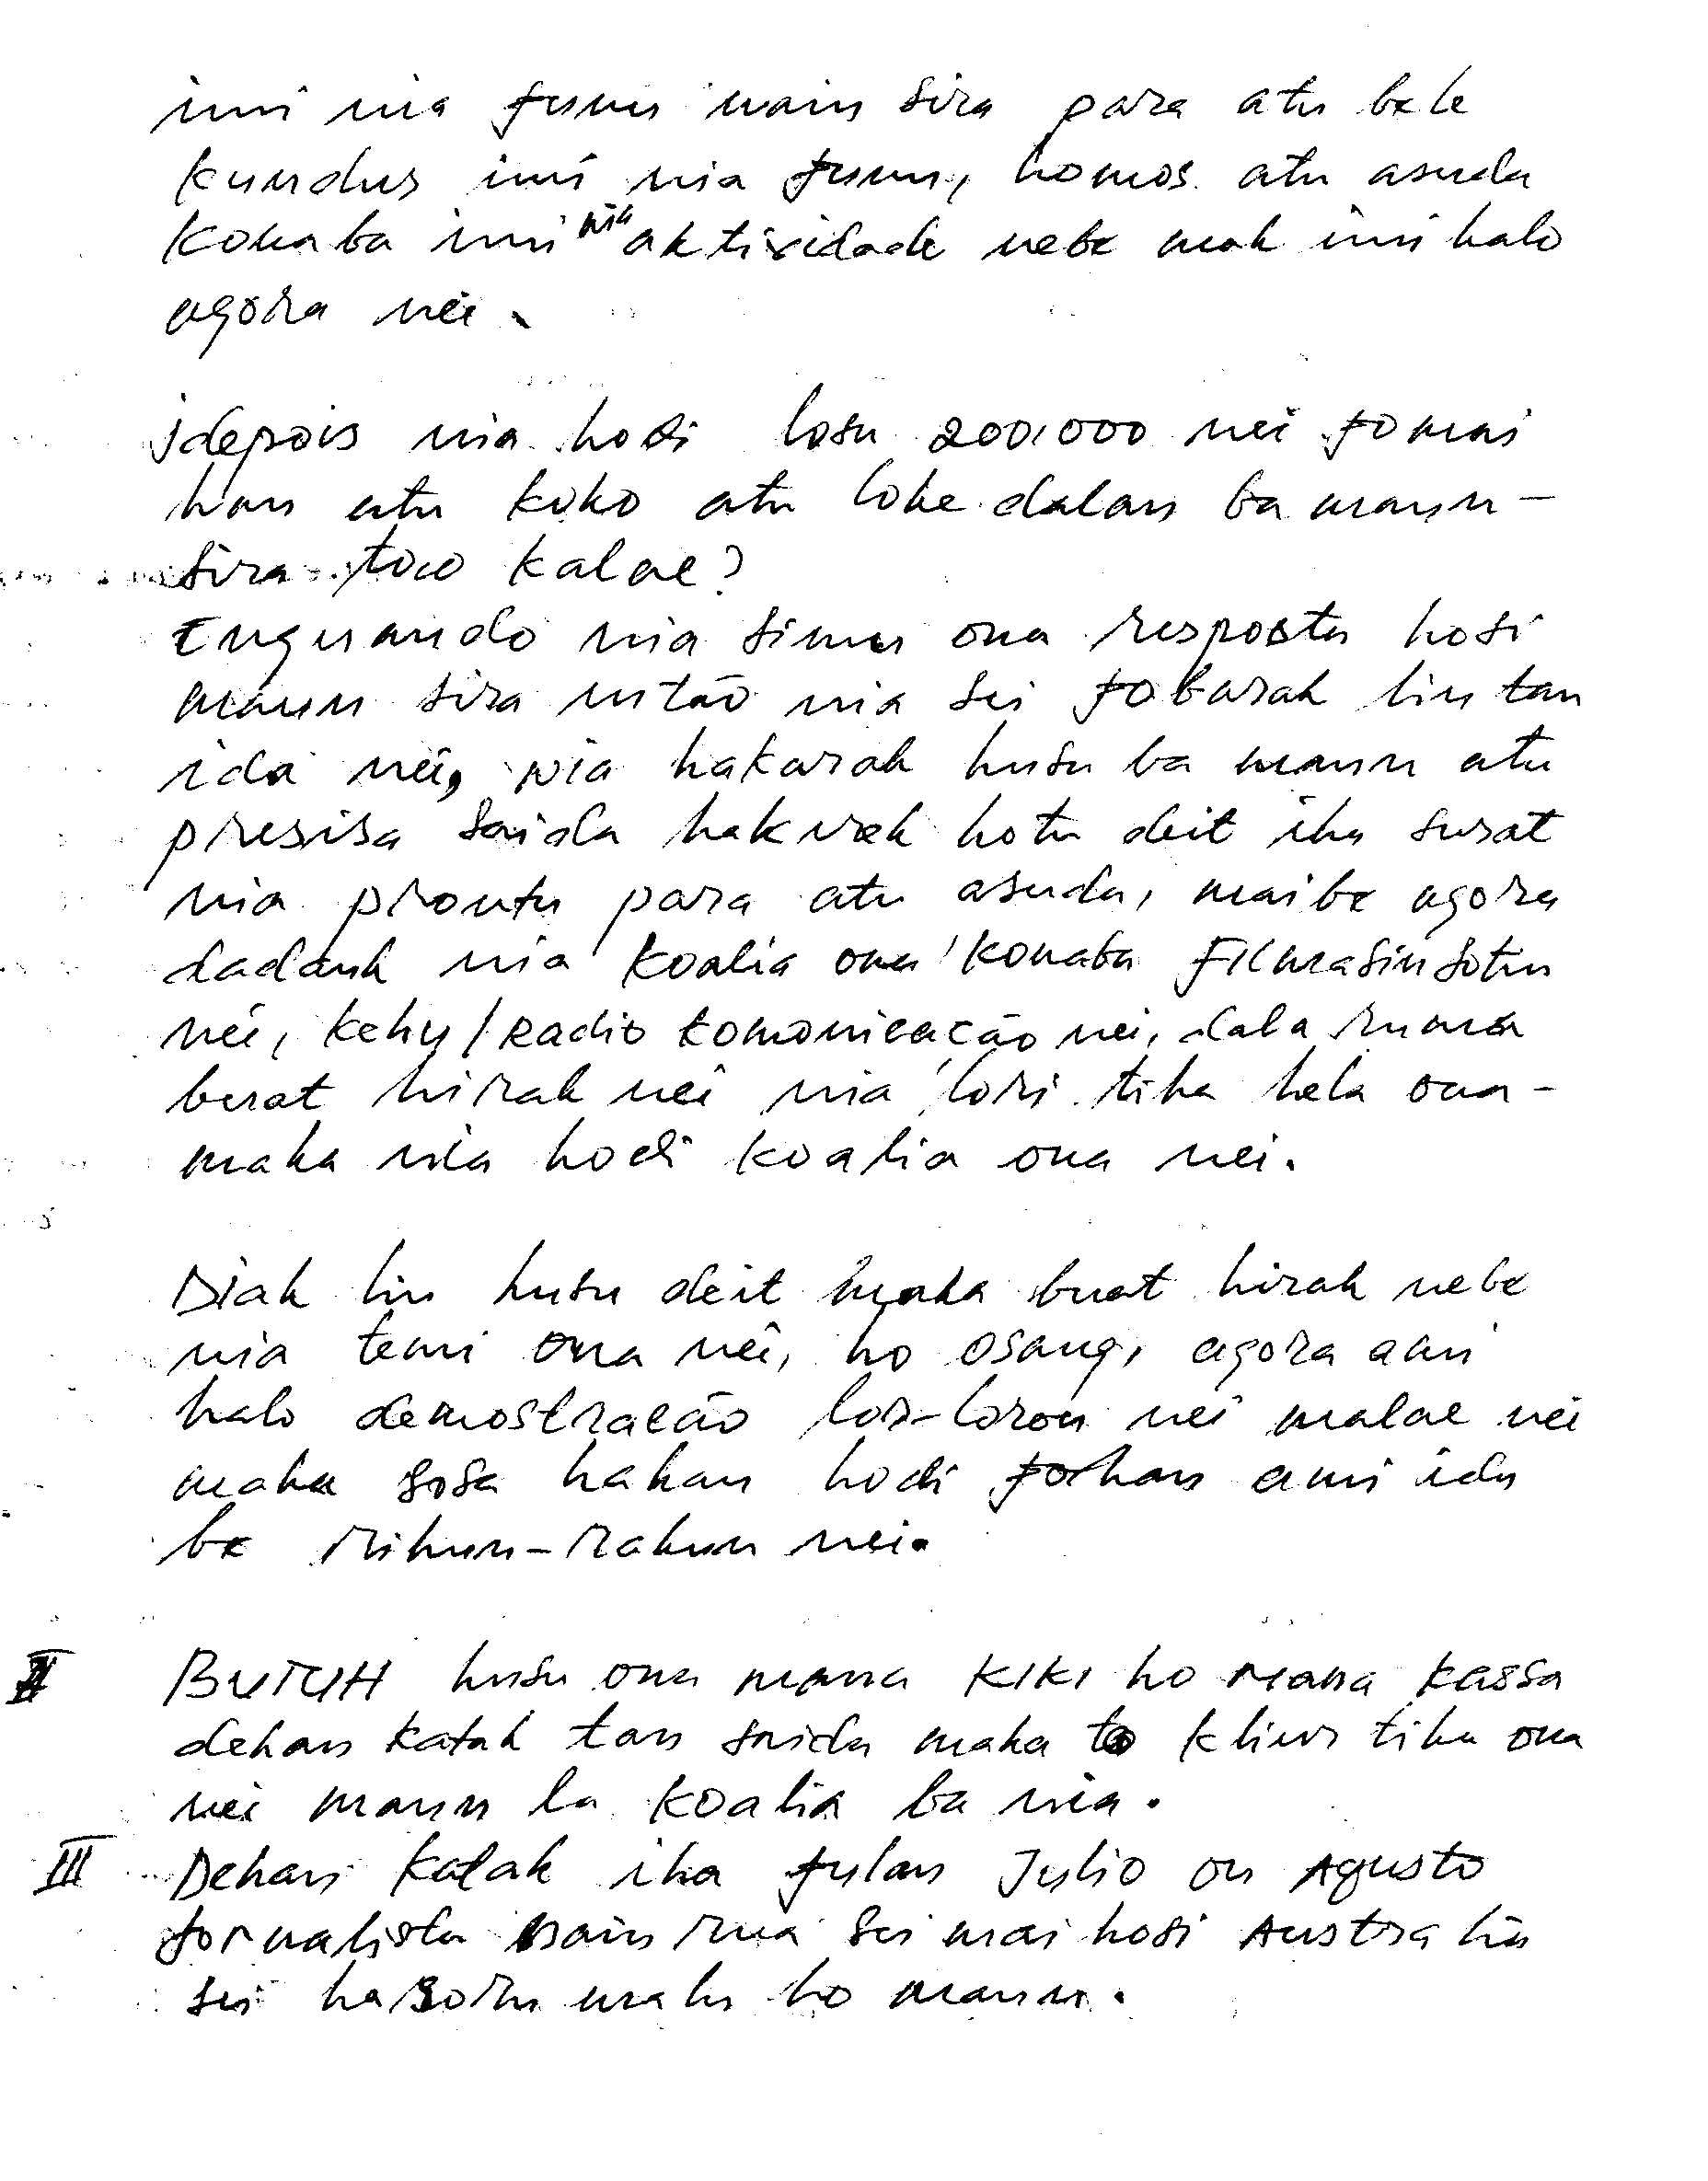 imi nia funu nain sira para atu bele
kundus imi nia funu, homos atu asuda
konaba imi nia aktividade nebe mak imi halo
agora nei.
idepois nia hosi losu 200.000 nei fo mai
hau atu koko atu loke dalan ba maun-
sira too kalae?
Enguando nia simu ona resposta hosi
maun sira então nia sei fo barak liu tan
ida nei, nia hakarak husu ba maun atu
presisa saida hakrek hotu deit iha surat
nia prontu para atu asuda, maibe agora
dadauk nia koalia ona konaba Filmasin sotu
nei, keky/Radio komonicação nei, dala ruma
buat hirak nei nia lori tiha hela ona-
maka nia hodi koalia ona nei.
Diak liu husu deit maka buat hirak nebe
nia temi ona nei, ho osang, agora ami
halo demostração lor-loron nei malae nei
maka sosa hahan hodi fo han ami idu
be rihun-rahun nei.
II BUTUH husu ona mana KIKI ho mana kassa
dehan katak tan saida maka to kleur tiha ona
nei maun la koalia ba nia.
III Dehan katak iha fulan Julio ou Agusto
jornalista nain rua sei mai hosi Australia
sei hasoru malu ho maun.